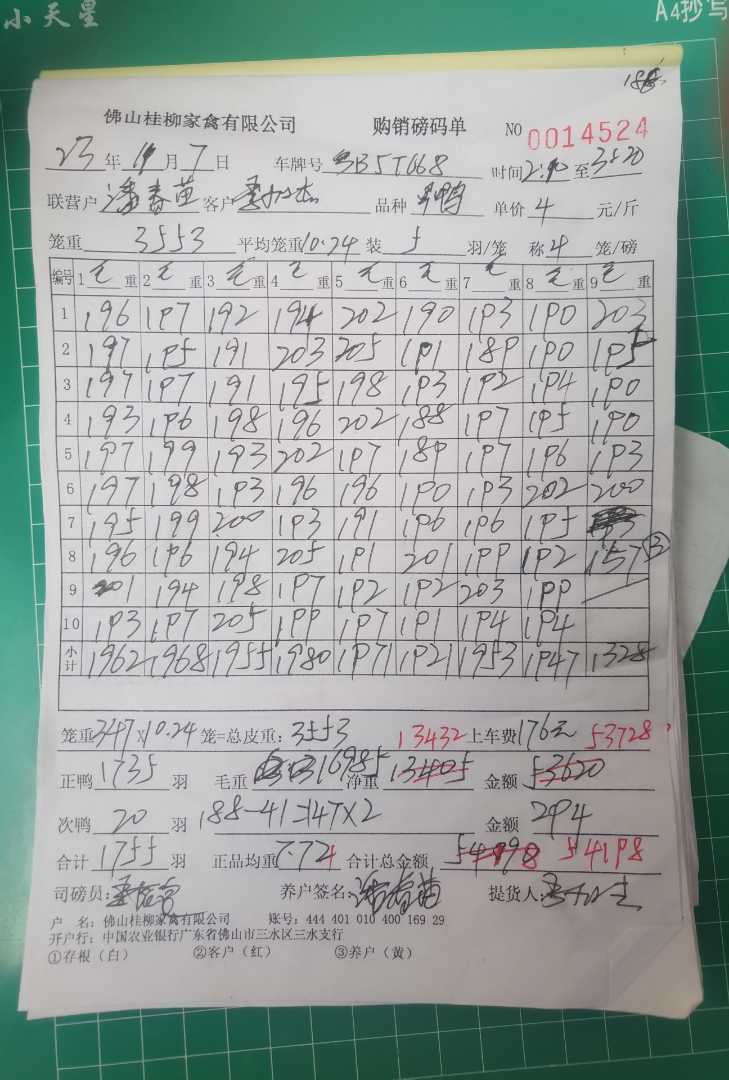 小天星
A4抄写
188
佛山桂柳家禽有限公司 购销磅码单 NO 0014524
23年 月7日 车牌号 时间2: 至3:20
联营户潘春苗客户 品种 鸭 单价4元/斤
笼重3553平均笼重10.24装5羽/笼 称4笼/磅
编号 1毛重 2毛重 3毛重 4毛重 5毛重 6毛重 7毛重 8毛重 9毛重
1 196 197 192 194 202 190 193 190 203
2 197 195 191 203 205 191 189 190 195
3 197 197 191 195 198 193 192 194 190
4 193 196 198 196 202 188 197 195 190
5 197 199 193 202 197 189 197 196 193
6 197 198 193 196 196 190 193 202 200
7 195 199 200 193 191 196 196 195
8 196 196 194 205 191 201 199 192 157③
9 201 194 198 197 192 192 203 199
10 193 197 205 199 197 191 194 194
小计 1962 1968 1955 1980 1971 1921 1953 1947 1328
笼重347×10.24笼=总皮重:3553 13432上车费176元 53728
正鸭1735羽 毛重16985净重13405 金额53620
次鸭20羽 188-41=147×2 金额294
合计1755羽 正品均重7.724 合计总金额 54198
司磅员: 养户签名:潘春苗 提货人:
户 名:佛山桂柳家禽有限公司 账号:444 401 010 400 169 29
开户行:中国农业银行广东省佛山市三水区三水支行
①存根(白) ②客户(红) ③养户(黄)